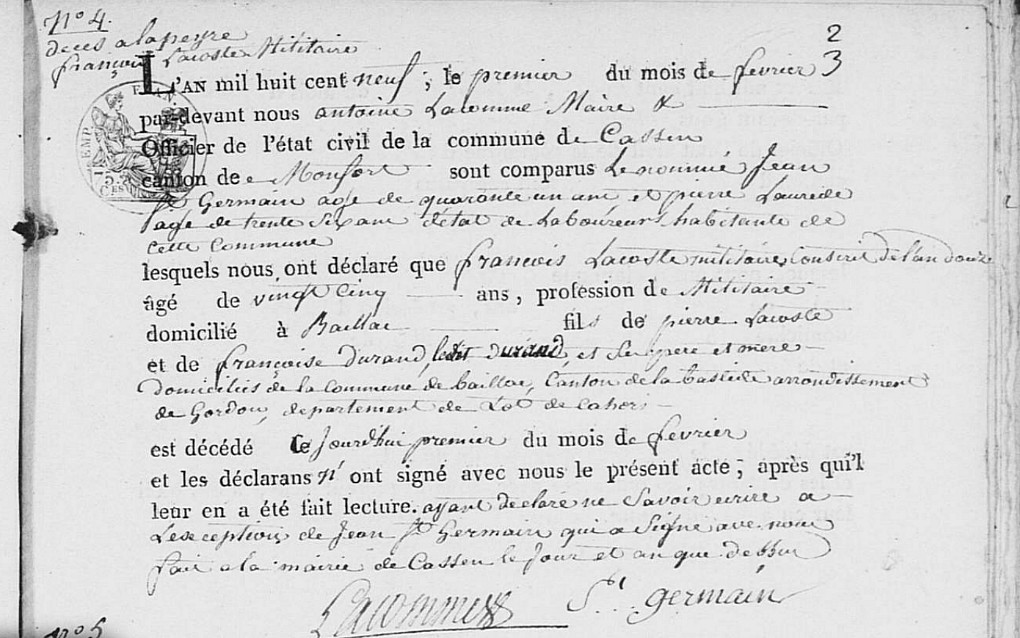 N° 4.
deces a lapeyre
françois Lacoste Militaire
2
3
L'AN mil huit cent neuf ; le premier du mois de fevrier
par-devant nous antoine Lacomme Maire &
Officier de l'état civil de la commune de Cassen
canton de Monfort sont comparus Le nommé Jean
St Germain agé de quarante un ans et pierre Laurede
agé de trente six ans d'état de Laboureurs habitants de
cette Commune
lesquels nous ont déclaré que françois Lacoste militaire, Conscrit de l'an douze
âgé de vingt Cinq ans, profession de Militaire
domicilié à Baillac fils de pierre Lacoste
et de françoise durand, ledit durand, et Ses pere et mere
domiciliés de la commune de baillac, Canton de la bastide arrondissement
de Gordou, departement de Lot de Cahors
est décédé Ce Jourdhui premier du mois de fevrier
et les déclarans n' ont signé avec nous le présent acte ; après qu'il
leur en a été fait lecture. ayant declaré ne Savoir ecrire a
Lesception de Jean St Germain qui a Signé avec nous
fait a la mairie de Cassen le Jour et an que dessus
Lacomme St. germain
N° 5